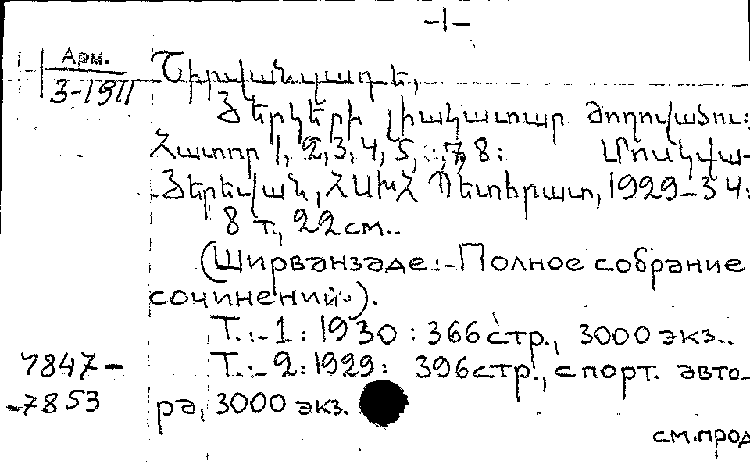 -1-
Арм.
3-1911
Շիրվանզադե,
Երկերի լիակատար ժողովածու:
Հատոր 1, 2, 3, 4, 5, 7, 8: Մոսկվա-
Երևան, ՀՍԽՀ Պետհրատ, 1929-34:
8 т., 22 см..
(Ширванзаде.-Полное собрание
сочинений.).
Т.-1: 1930: 366 стр., 3000 экз..
7847-
Т.-2: 1929: 396 стр., с порт. авто-
-7853
ра, 3000 экз.
см. прод